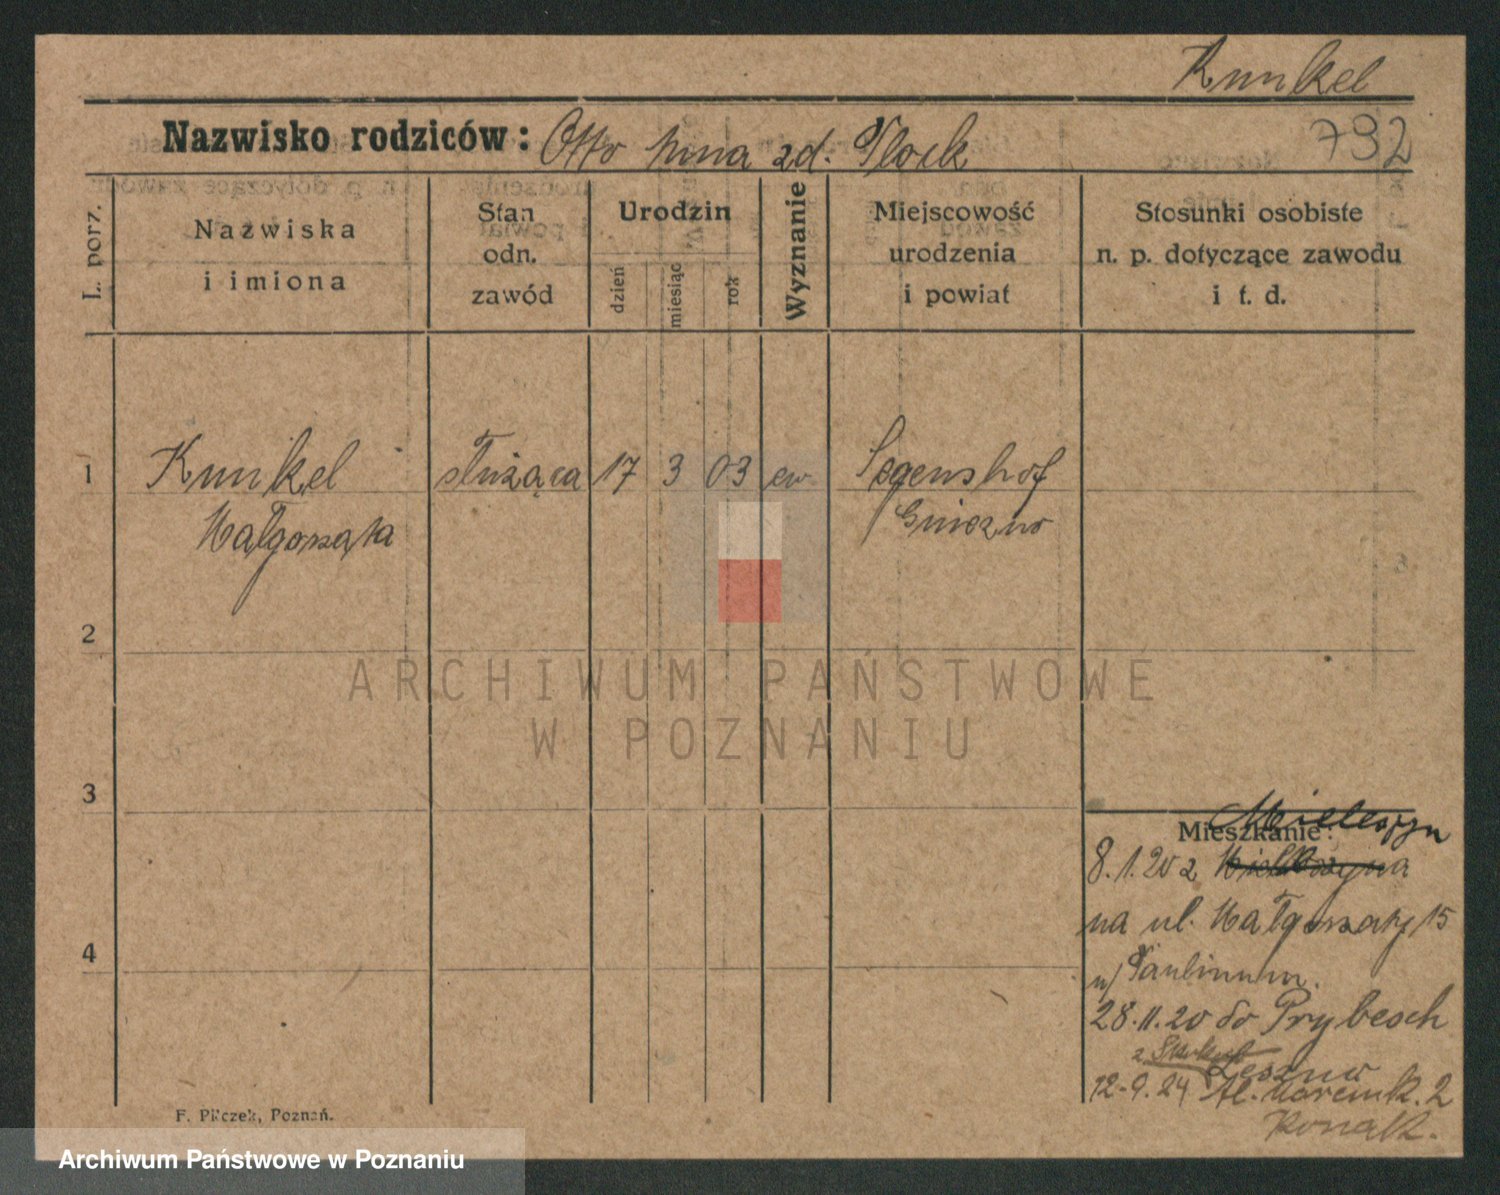 Kunkel
Nazwisko rodziców: Otto Anna zd. Plock
792
L. porz.
Nazwiska
i imiona
Stan
odn.
zawód
Urodzin
dzień
miesiąc
rok
Wyznanie
Miejscowość
urodzenia
i powiat
Stosunki osobiste
n. p. dotyczące zawodu
i t. d.
1 Kunkel służąca 17 3 03 ew. Segenshof
Małgorzata Gniezno
2
ARCHIWUM PAŃSTWOWE
W POZNANIU
3
Mieleszyn
Mieszkanie:
8.1.20 z
na ul. Małgorzaty 15
u/ Paulinum.
4
28.11.20 do Prybesch
Leszno
12-9.24 Al. Marcink. 2
F. Pilczek, Poznań.
Archiwum Państwowe w Poznaniu